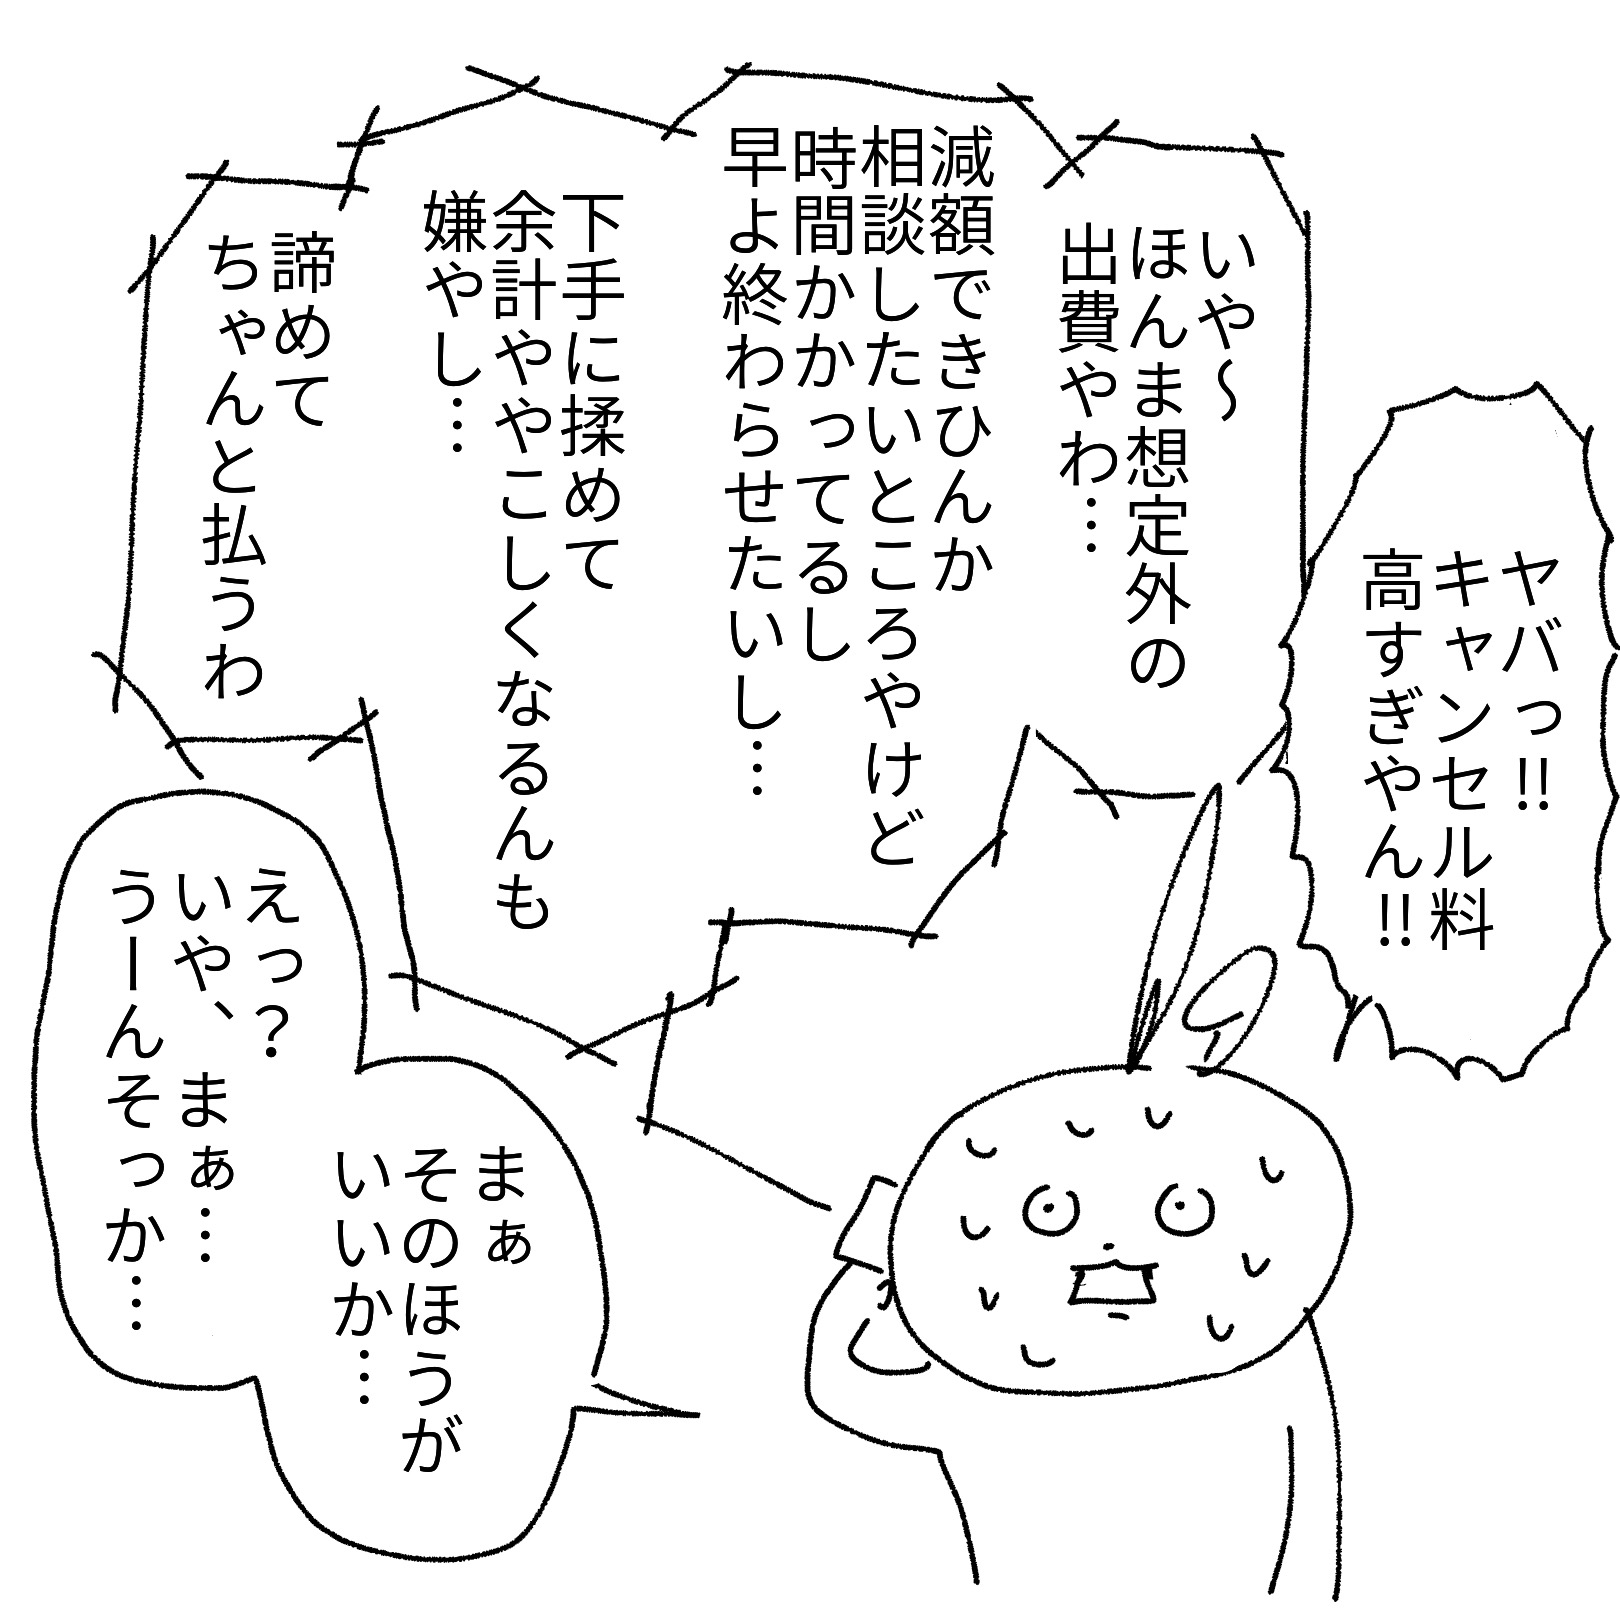 ヤバっ!!
キャンセル料
高すぎやん!!
いや〜
ほんま想定外の
出費やわ…
減額できひんか
相談したいところやけど
時間かかってるし
早よ終わらせたいし…
下手に揉めて
余計ややこしくなるんも
嫌やし…
諦めて
ちゃんと払うわ
まぁ
そのほうが
いいか…
えっ?
いや、まぁ…
うーんそっか…